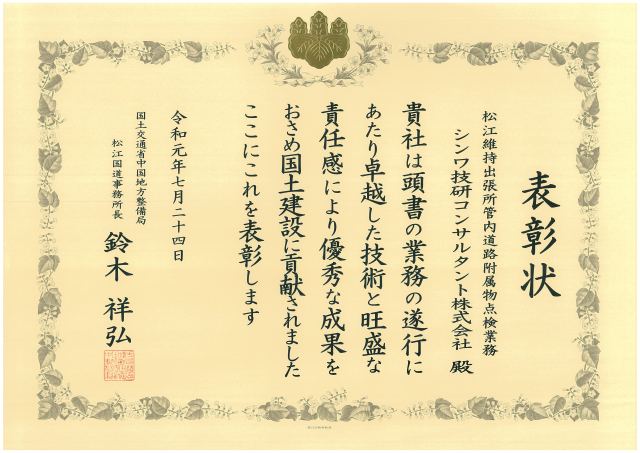 表彰状
松江維持出張所管内道路附属物点検業務
シンワ技研コンサルタント株式会社 殿
貴社は頭書の業務の遂行に
あたり卓越した技術と旺盛な
責任感により優秀な成果を
おさめ国土建設に貢献されました
ここにこれを表彰します
令和元年七月二十四日
国土交通省中国地方整備局
松江国道事務所長
鈴木 祥弘